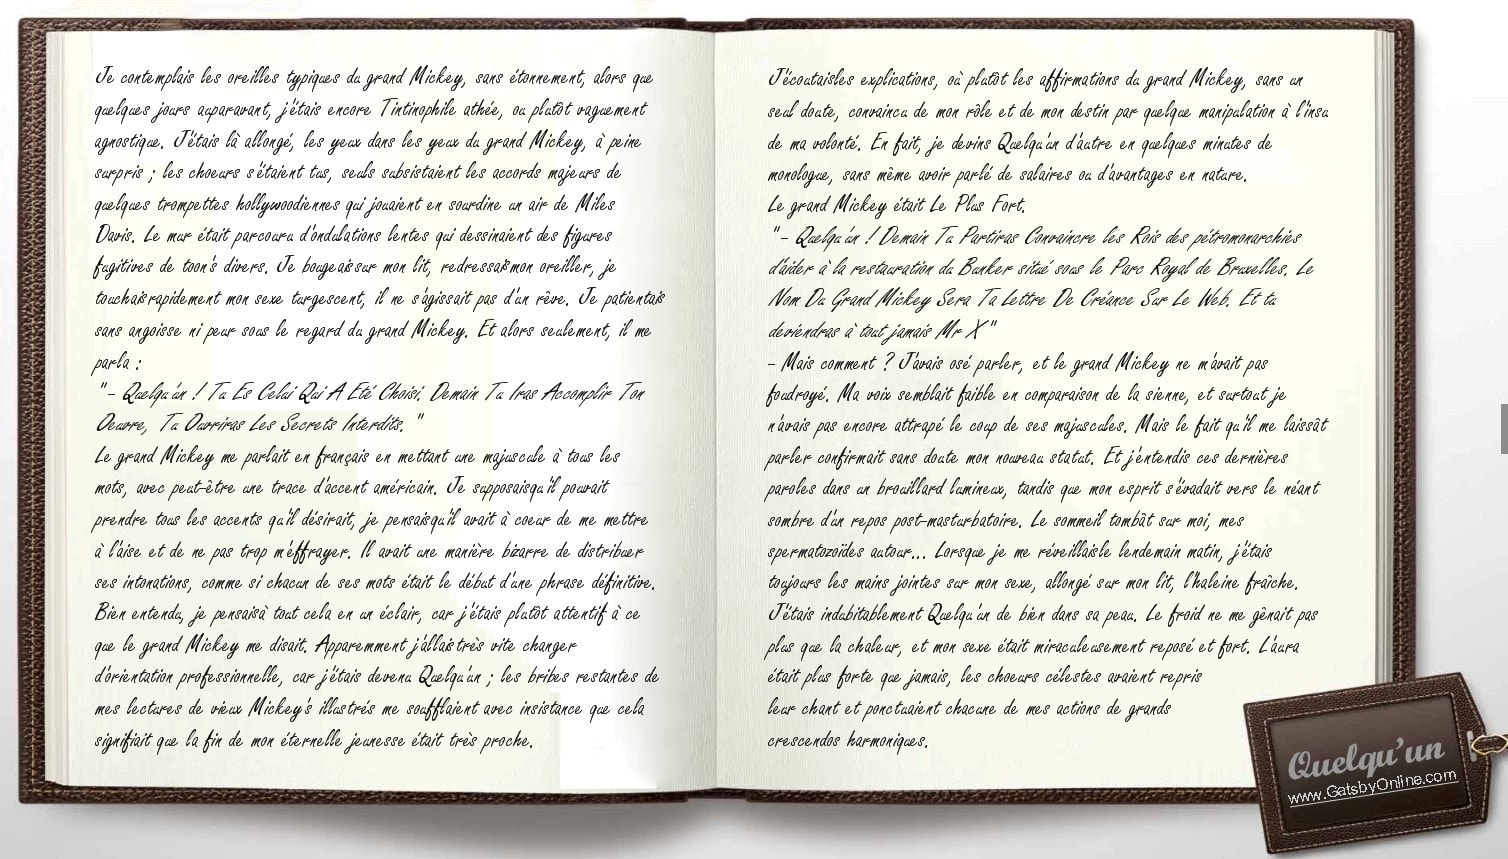 Je contemplais les oreilles typiques du grand Mickey, sans étonnement, alors que
quelques jours auparavant, j'étais encore Tintinophile athée, ou plutôt vaguement
agnostique. J'étais là allongé, les yeux dans les yeux du grand Mickey, à peine
surpris ; les choeurs s'étaient tus, seuls subsistaient les accords majeurs de
quelques trompettes hollywoodiennes qui jouaient en sourdine un air de Miles
Davis. Le mur était parcouru d'ondulations lentes qui dessinaient des figures
fugitives de toon's divers. Je bougeais sur mon lit, redressais mon oreiller, je
touchais rapidement mon sexe turgescent, il ne s'agissait pas d'un rêve. Je patientais
sans angoisse ni peur sous le regard du grand Mickey. Et alors seulement, il me
parla :
"- Quelqu'un ! Tu Es Celui Qui A Eté Choisi. Demain Tu Iras Accomplir Ton
Oeuvre, Tu Ouvriras Les Secrets Interdits. "
Le grand Mickey me parlait en français en mettant une majuscule à tous les
mots, avec peut-être une trace d'accent américain. Je supposais qu'il pouvait
prendre tous les accents qu'il désirait, je pensais qu'il avait à coeur de me mettre
à l'aise et de ne pas trop m'effrayer. Il avait une manière bizarre de distribuer
ses intonations, comme si chacun de ses mots était le début d'une phrase définitive.
Bien entendu, je pensais à tout cela en un éclair, car j'étais plutôt attentif à ce
que le grand Mickey me disait. Apparemment j'allais très vite changer
d'orientation professionnelle, car j'étais devenu Quelqu'un ; les bribes restantes de
mes lectures de vieux Mickey's illustrés me soufflaient avec insistance que cela
signifiait que la fin de mon éternelle jeunesse était très proche.
J'écoutais les explications, où plutôt les affirmations du grand Mickey, sans un
seul doute, convaincu de mon rôle et de mon destin par quelque manipulation à l'insu
de ma volonté. En fait, je devins Quelqu'un d'autre en quelques minutes de
monologue, sans même avoir parlé de salaires ou d'avantages en nature.
Le grand Mickey était Le Plus Fort.
"- Quelqu'un ! Demain Tu Partiras Convaincre les Rois des pétromonarchies
d'aider à la restauration du Bunker situé sous le Parc Royal de Bruxelles. Le
Nom Du Grand Mickey Sera Ta Lettre De Créance Sur Le Web. Et tu
deviendras à tout jamais Mr X"
- Mais comment ? J'avais osé parler, et le grand Mickey ne m'avait pas
foudroyé. Ma voix semblait faible en comparaison de la sienne, et surtout je
n'avais pas encore attrapé le coup de ses majuscules. Mais le fait qu'il me laissât
parler confirmait sans doute mon nouveau statut. Et j'entendis ces dernières
paroles dans un brouillard lumineux, tandis que mon esprit s'évadait vers le néant
sombre d'un repos post-masturbatoire. Le sommeil tombât sur moi, mes
spermatozoïdes autour... Lorsque je me réveillais le lendemain matin, j'étais
toujours les mains jointes sur mon sexe, allongé sur mon lit, l'haleine fraîche.
J'étais indubitablement Quelqu'un de bien dans sa peau. Le froid ne me gênait pas
plus que la chaleur, et mon sexe était miraculeusement reposé et fort. L'aura
était plus forte que jamais, les choeurs célestes avaient repris
leur chant et ponctuaient chacune de mes actions de grands
crescendos harmoniques.
Quelqu'un !
www.GatsbyOnline.com